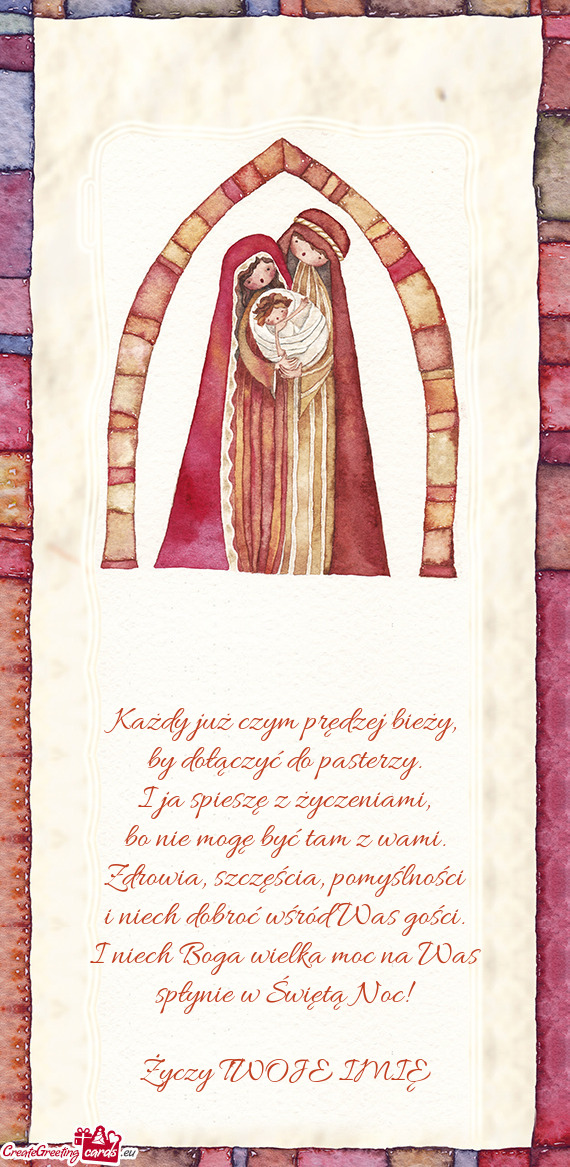 Każdy już czym prędzej bieży,
by dołączyć do pasterzy.
I ja spieszę z życzeniami,
bo nie mogę być tam z wami.
Zdrowia, szczęścia, pomyślności
i niech dobroć wśród Was gości.
I niech Boga wielka moc na Was
spłynie w Świętą Noc!
Życzy TWOJE IMIĘ
CreateGreetingcards.eu